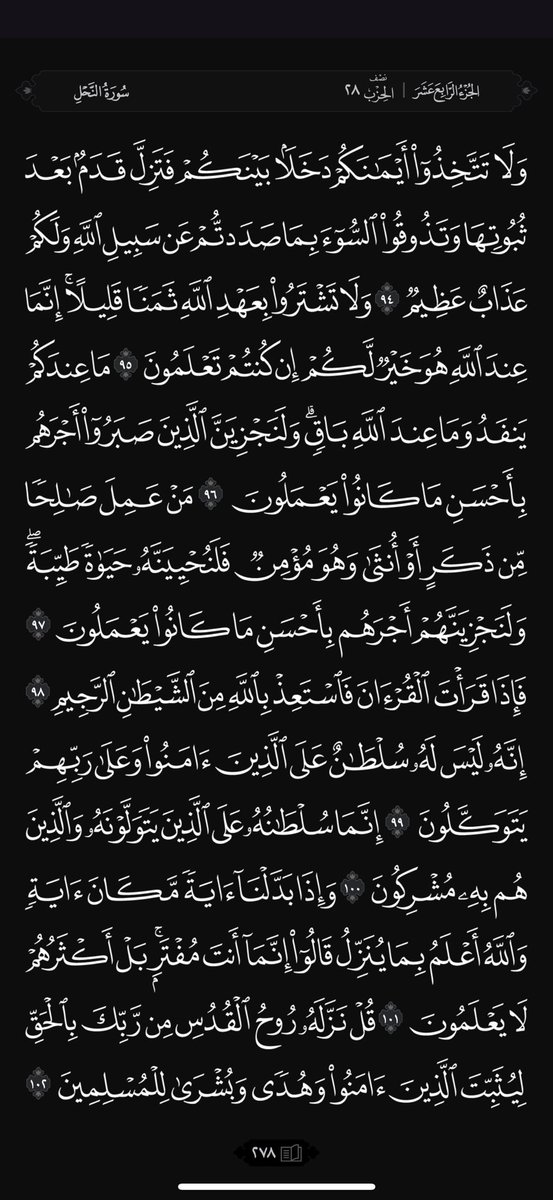 الجُزْءُ الرَّابِعَ عَشَرَ | نِصْف الحِزْب ٢٨ سُورَةُ النَّحْلِ
وَلَا تَتَّخِذُوٓا۟ أَيْمَـٰنَكُمْ دَخَلًۢا بَيْنَكُمْ فَتَزِلَّ قَدَمٌۢ بَعْدَ
ثُبُوتِهَا وَتَذُوقُوا۟ ٱلسُّوٓءَ بِمَا صَدَدتُّمْ عَن سَبِيلِ ٱللَّهِ وَلَكُمْ
عَذَابٌ عَظِيمٌ ٩٤ وَلَا تَشْتَرُوا۟ بِعَهْدِ ٱللَّهِ ثَمَنًا قَلِيلًا ۚ إِنَّمَا
عِندَ ٱللَّهِ هُوَ خَيْرٌ لَّكُمْ إِن كُنتُمْ تَعْلَمُونَ ٩٥ مَا عِندَكُمْ
يَنفَدُ وَمَا عِندَ ٱللَّهِ بَاقٍ ۗ وَلَنَجْزِيَنَّ ٱلَّذِينَ صَبَرُوٓا۟ أَجْرَهُم
بِأَحْسَنِ مَا كَانُوا۟ يَعْمَلُونَ ٩٦ مَنْ عَمِلَ صَـٰلِحًا
مِّن ذَكَرٍ أَوْ أُنثَىٰ وَهُوَ مُؤْمِنٌ فَلَنُحْيِيَنَّهُۥ حَيَوٰةً طَيِّبَةً ۖ
وَلَنَجْزِيَنَّهُمْ أَجْرَهُم بِأَحْسَنِ مَا كَانُوا۟ يَعْمَلُونَ ٩٧
فَإِذَا قَرَأْتَ ٱلْقُرْءَانَ فَٱسْتَعِذْ بِٱللَّهِ مِنَ ٱلشَّيْطَـٰنِ ٱلرَّجِيمِ ٩٨
إِنَّهُۥ لَيْسَ لَهُۥ سُلْطَـٰنٌ عَلَى ٱلَّذِينَ ءَامَنُوا۟ وَعَلَىٰ رَبِّهِمْ
يَتَوَكَّلُونَ ٩٩ إِنَّمَا سُلْطَـٰنُهُۥ عَلَى ٱلَّذِينَ يَتَوَلَّوْنَهُۥ وَٱلَّذِينَ
هُم بِهِۦ مُشْرِكُونَ ١٠٠ وَإِذَا بَدَّلْنَآ ءَايَةً مَّكَانَ ءَايَةٍ
وَٱللَّهُ أَعْلَمُ بِمَا يُنَزِّلُ قَالُوٓا۟ إِنَّمَآ أَنتَ مُفْتَرٍۭ ۚ بَلْ أَكْثَرُهُمْ
لَا يَعْلَمُونَ ١٠١ قُلْ نَزَّلَهُۥ رُوحُ ٱلْقُدُسِ مِن رَّبِّكَ بِٱلْحَقِّ
لِيُثَبِّتَ ٱلَّذِينَ ءَامَنُوا۟ وَهُدًى وَبُشْرَىٰ لِلْمُسْلِمِينَ ١٠٢
٢٧٨